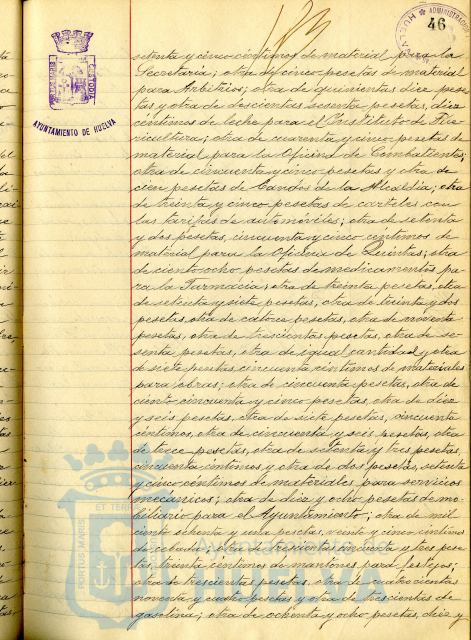 46
AYUNTAMIENTO DE HUELVA
setenta y cinco centimos de material para la
Secretaria; otra de cinco pesetas de material
para Arbitrios; otra de quinientas diez pese
tas y otra de doscientas sesenta pesetas, diez
centimos de leche para el Instituto de
ricultura; otra de cuarenta y cinco pesetas de
material para la Oficina de Combatientes;
otra de cincuenta y cinco pesetas y otra de
cien pesetas de de la Alcaldia; otra
de treinta y cinco pesetas de carteles con
las tarifas de automóviles; otra de setenta
y dos pesetas, cincuenta y cinco centimos de
material para la Oficina de Quintas; otra
de ciento ocho pesetas de medicamentos pa
ra la Farmacia; otra de treinta pesetas, otra
de setenta y siete pesetas, otra de treinta y dos
pesetas, otra de catorce pesetas, otra de noventa
pesetas, otra de trescientas pesetas, otra de se
senta pesetas, otra de igual cantidad y otra
de siete pesetas cincuenta centimos de materiales
para obras; otra de cincuenta pesetas, otra de
ciento cincuenta y cinco pesetas, otra de diez
y seis pesetas, otra de siete pesetas, cincuenta
centimos, otra de cincuenta y seis pesetas, otra
de trece pesetas, otra de setenta y tres pesetas,
cincuenta centimos y otra de dos pesetas, setenta
y cinco centimos de materiales para servicios
mecanicos; otra de diez y ocho pesetas de mo
biliario para el Ayuntamiento; otra de mil
ciento setenta y una pesetas, veinte y cinco centimos
de cebada; otra de cincuenta y tres pese
tas, treinta centimos de mantones para festejos;
otra de trescientas pesetas, otra de cuatrocientas
noventa y cuatro pesetas y otra de trescientas de
gasolina; otra de ochenta y ocho pesetas, diez y
PORTUS MARIS ET TERRAE
Ayuntamiento de
HUELVA